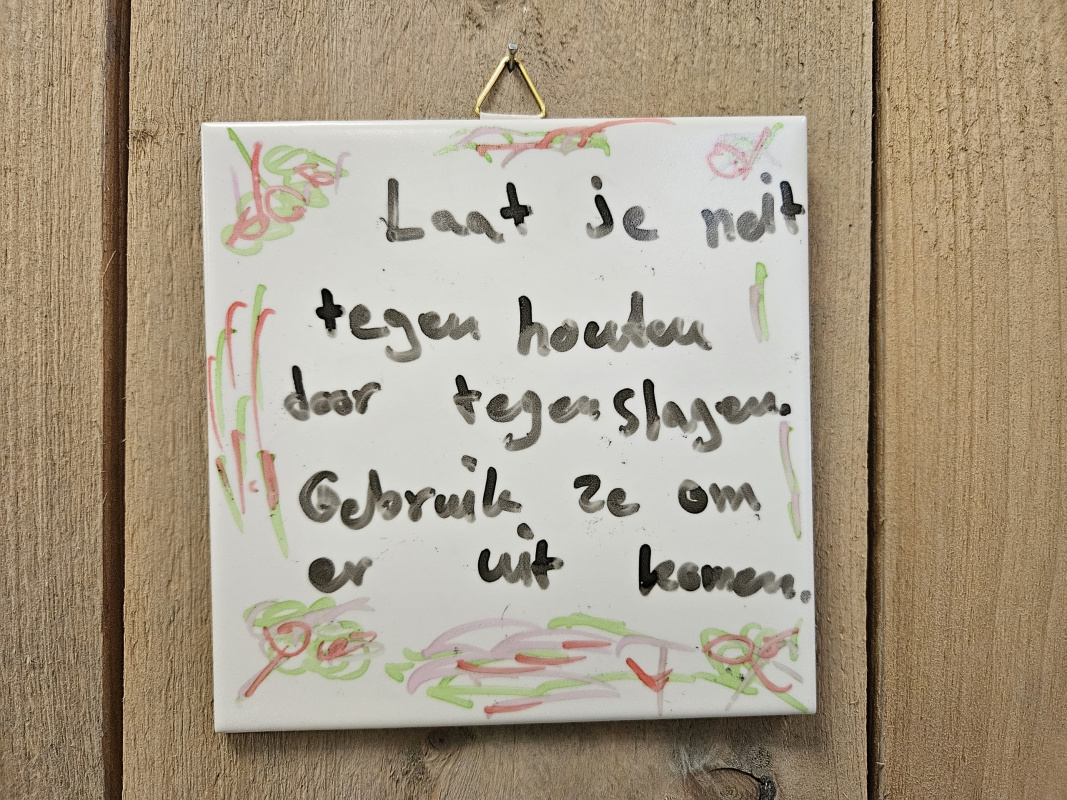 Laat je neit
tegen houden
door tegenslagen.
Gebruik ze om
er uit komen.